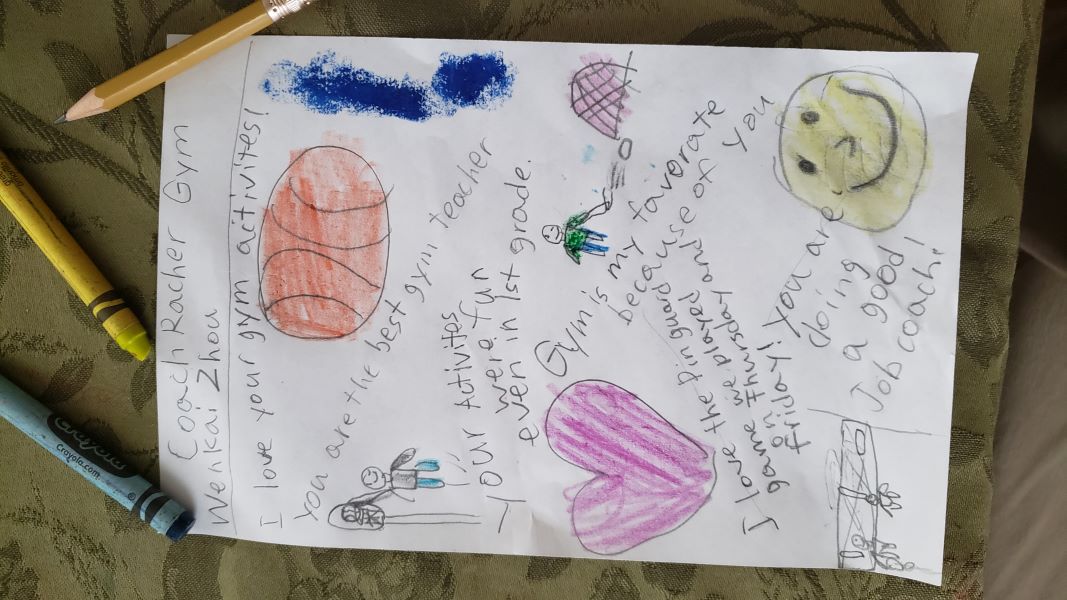 Coach Racher Gym
Wenkai Zhou
I love your gym activites!
You are the best gym teacher
Your Activites
were fun
even in 1st grade.
Gym is my favorate
because of you
I love the Pinguard
game we played and
on Thursday
friday! you are
doing
a good
Job coach!
crayola.com